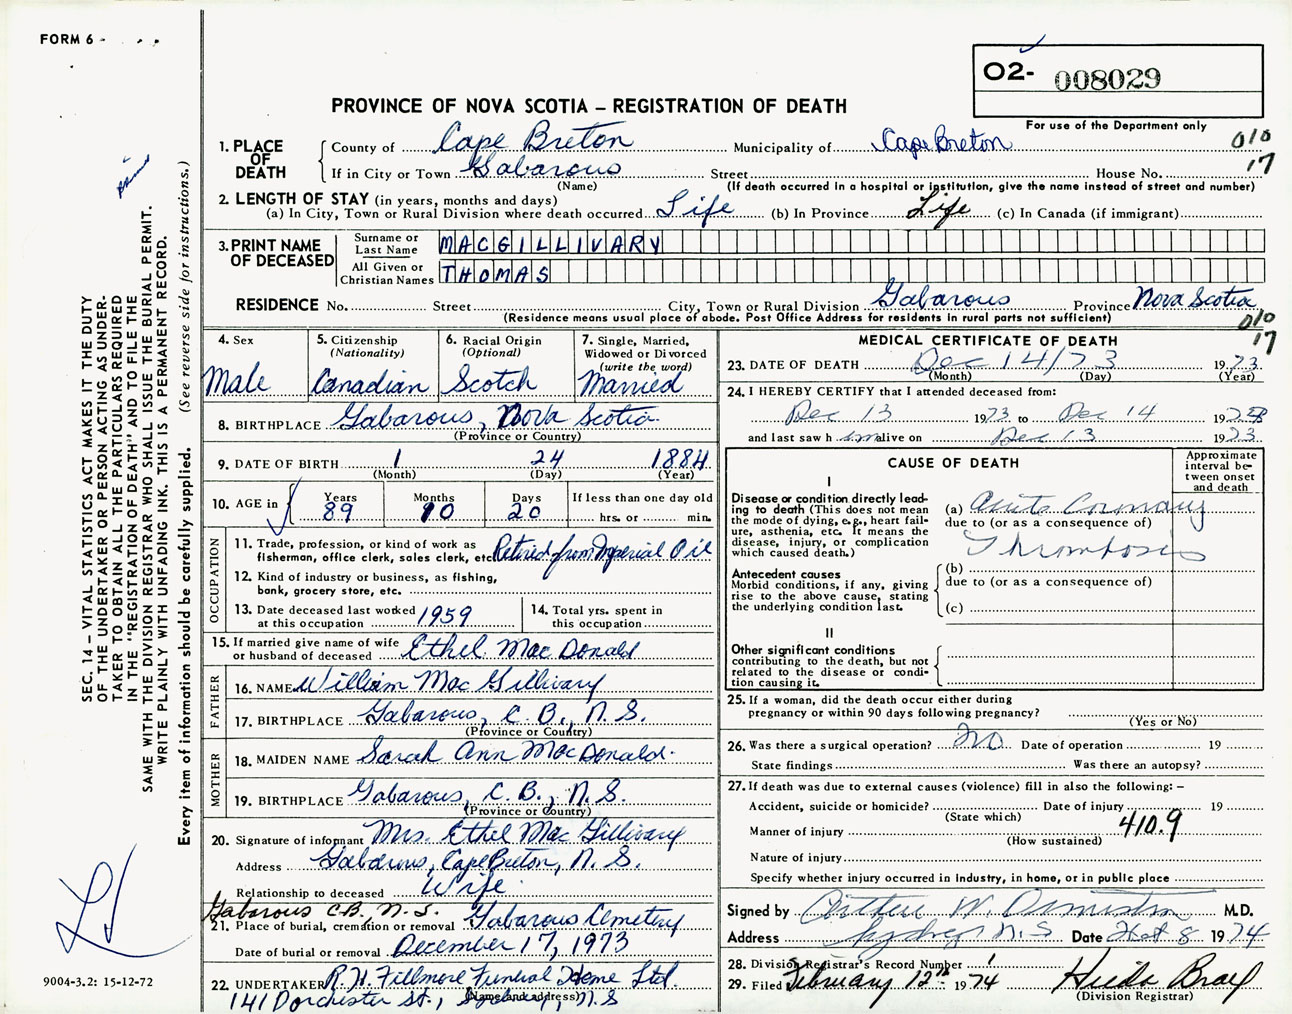 FORM 6-
O2- 008029
For use of the Department only
PROVINCE OF NOVA SCOTIA – REGISTRATION OF DEATH
010
17
1. PLACE OF DEATH
County of Cape Breton Municipality of Cape Breton
If in City or Town Gabarous Street House No.
(Name) (If death occurred in a hospital or institution, give the name instead of street and number)
2. LENGTH OF STAY (in years, months and days)
(a) In City, Town or Rural Division where death occurred Life (b) In Province Life (c) In Canada (if immigrant)
3. PRINT NAME OF DECEASED
Surname or Last Name MACGILLIVARY
All Given or Christian Names THOMAS
RESIDENCE No. Street City, Town or Rural Division Gabarous Province Nova Scotia
(Residence means usual place of abode. Post Office Address for residents in rural parts not sufficient)
010
17
4. Sex Male
5. Citizenship (Nationality) Canadian
6. Racial Origin (Optional) Scotch
7. Single, Married, Widowed or Divorced (write the word) Married
8. BIRTHPLACE Gabarous, Nova Scotia
(Province or Country)
9. DATE OF BIRTH 1 24 1884
(Month) (Day) (Year)
10. AGE in Years 89 Months 10 Days 20 If less than one day old hrs. or min.
OCCUPATION
11. Trade, profession, or kind of work as fisherman, office clerk, sales clerk, etc. Retired from Imperial Oil
12. Kind of industry or business, as fishing, bank, grocery store, etc.
13. Date deceased last worked at this occupation 1959
14. Total yrs. spent in this occupation
15. If married give name of wife or husband of deceased Ethel MacDonald
FATHER
16. NAME William MacGillivary
17. BIRTHPLACE Gabarous, C. B., N. S.
(Province or Country)
MOTHER
18. MAIDEN NAME Sarah Ann MacDonald.
19. BIRTHPLACE Gabarous, C. B., N. S.
(Province or Country)
20. Signature of informant Mrs. Ethel MacGillivary
Address Gabarous, Cape Breton, N. S.
Relationship to deceased Wife
Gabarous C.B., N.S.
21. Place of burial, cremation or removal Gabarous Cemetery
Date of burial or removal December 17, 1973
22. UNDERTAKER R. H. Fillmore Funeral Home Ltd.
(Name and address)
141 Dorchester St., Sydney, N.S
MEDICAL CERTIFICATE OF DEATH
23. DATE OF DEATH Dec 14/73 1973
(Month) (Day) (Year)
24. I HEREBY CERTIFY that I attended deceased from:
Dec 13 1973 to Dec 14 1973
and last saw him alive on Dec 13 1973
CAUSE OF DEATH
Approximate interval between onset and death
I
Disease or condition directly leading to death (This does not mean the mode of dying, e.g., heart failure, asthenia, etc. It means the disease, injury, or complication which caused death.)
(a) Acute Coronary
due to (or as a consequence of)
Thrombosis
Antecedent causes
Morbid conditions, if any, giving rise to the above cause, stating the underlying condition last.
(b)
due to (or as a consequence of)
(c)
II
Other significant conditions
contributing to the death, but not related to the disease or condition causing it.
25. If a woman, did the death occur either during pregnancy or within 90 days following pregnancy?
(Yes or No)
26. Was there a surgical operation? No Date of operation 19
State findings Was there an autopsy?
27. If death was due to external causes (violence) fill in also the following: –
Accident, suicide or homicide? Date of injury 19
(State which)
Manner of injury 410.9
(How sustained)
Nature of injury
Specify whether injury occurred in industry, in home, or in public place
Signed by Arthur W. Ormiston M.D.
Address Sydney N.S Date 8 1974
28. Division Registrar's Record Number 1
29. Filed February 12th 1974
(Division Registrar)
SEC. 14 – VITAL STATISTICS ACT MAKES IT THE DUTY
OF THE UNDERTAKER OR PERSON ACTING AS UNDER-
TAKER TO OBTAIN ALL THE PARTICULARS REQUIRED
IN THE "REGISTRATION OF DEATH" AND TO FILE THE
SAME WITH THE DIVISION REGISTRAR WHO SHALL ISSUE THE BURIAL PERMIT.
WRITE PLAINLY WITH UNFADING INK. THIS IS A PERMANENT RECORD.
Every item of information should be carefully supplied. (See reverse side for instructions.)
9004-3.2: 15-12-72